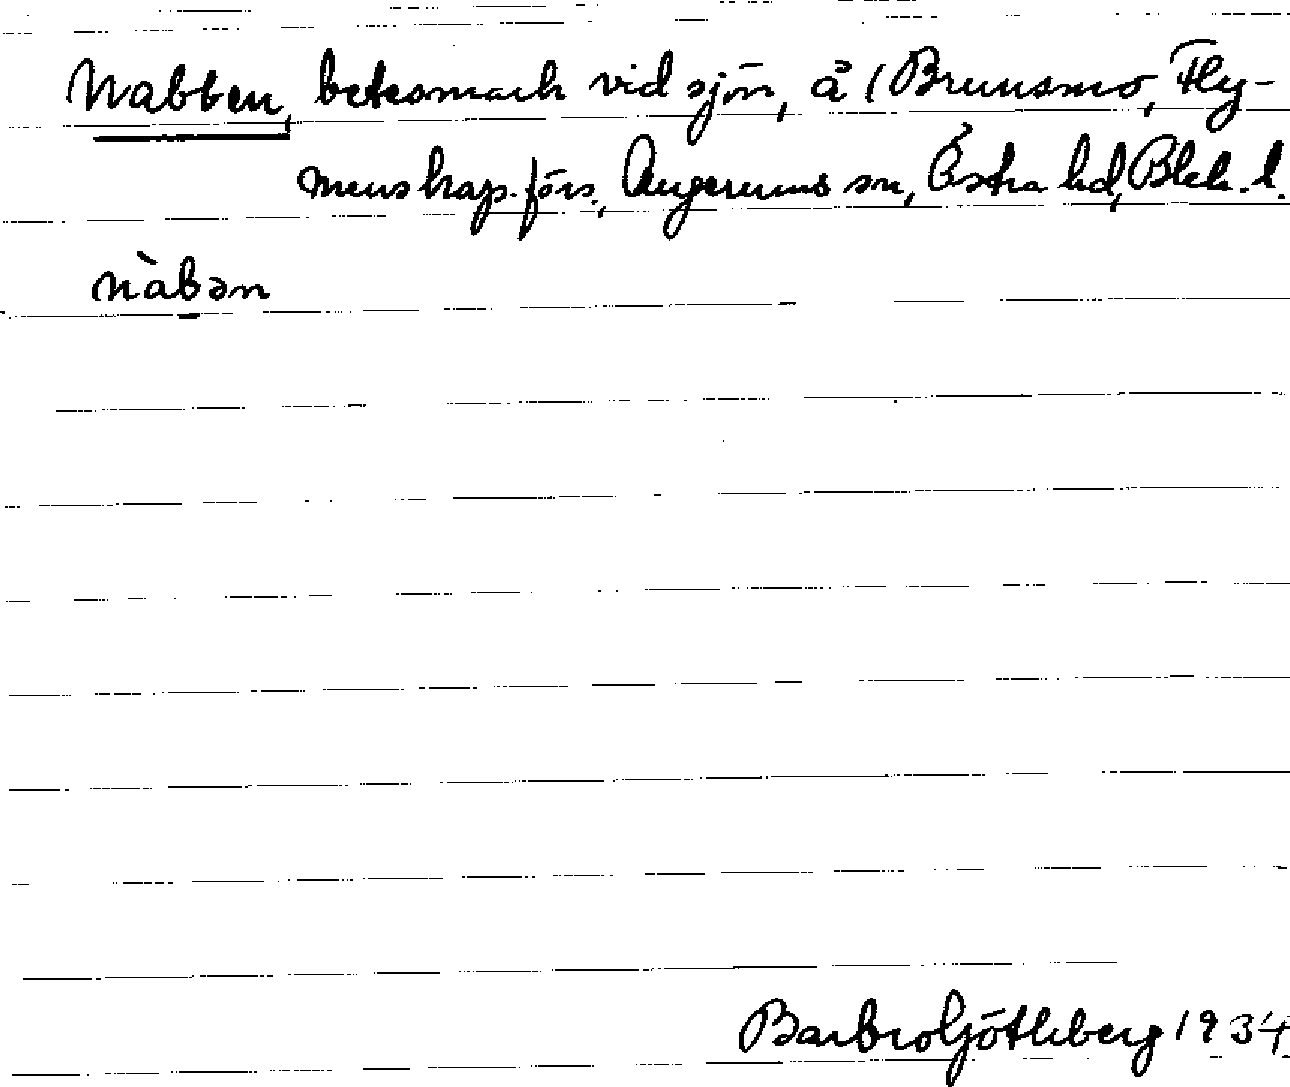 Nabben, betesmark vid sjön, å 1 Brunsmo, Fly-
mens kap.förs., Augerums sn, Östra hd, Blek. l.
nàbən
Barbro Götleberg 1934